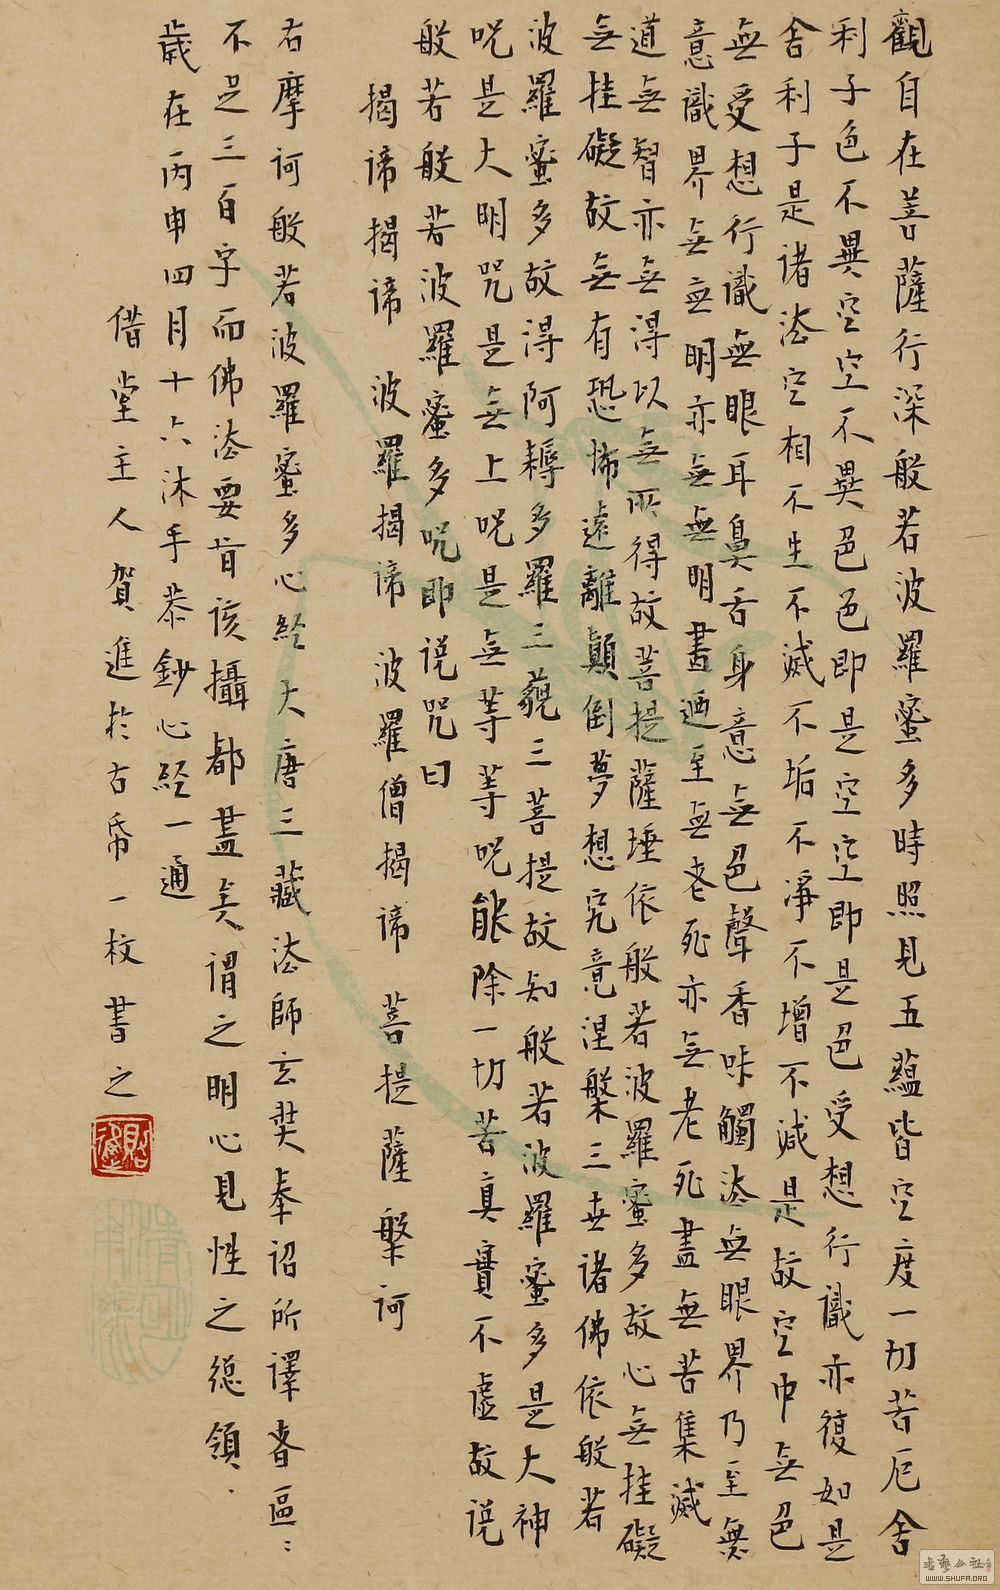 觀自在菩薩行深般若波羅蜜多時照見五蘊皆空度一切苦厄舍
利子色不異空空不異色色即是空空即是色受想行識亦復如是
舍利子是諸法空相不生不滅不垢不淨不增不減是故空中無色
無受想行識無眼耳鼻舌身意無色聲香味觸法無眼界乃至無
意識界無無明亦無無明盡迺至無老死亦無老死盡無苦集滅
道無智亦無得以無所得故菩提薩埵依般若波羅蜜多故心無挂礙
無挂礙故無有恐怖遠離顛倒夢想究竟涅槃三世諸佛依般若
波羅蜜多故得阿耨多羅三藐三菩提故知般若波羅蜜多是大神
咒是大明咒是無上咒是無等等咒能除一切苦真實不虛故說
般若般若波羅蜜多咒即說咒曰
揭諦揭諦 波羅揭諦 波羅僧揭諦 菩提薩槃訶
右摩訶般若波羅蜜多心經大唐三藏法師玄奘奉詔所譯者區々
不足三百字而佛法要旨該攝都盡矣謂之明心見性之總領
歲在丙申四月十六沐手恭鈔心經一通
借堂主人賀進於古帋一枚書之
書藝公社
WWW.SHUFA.ORG